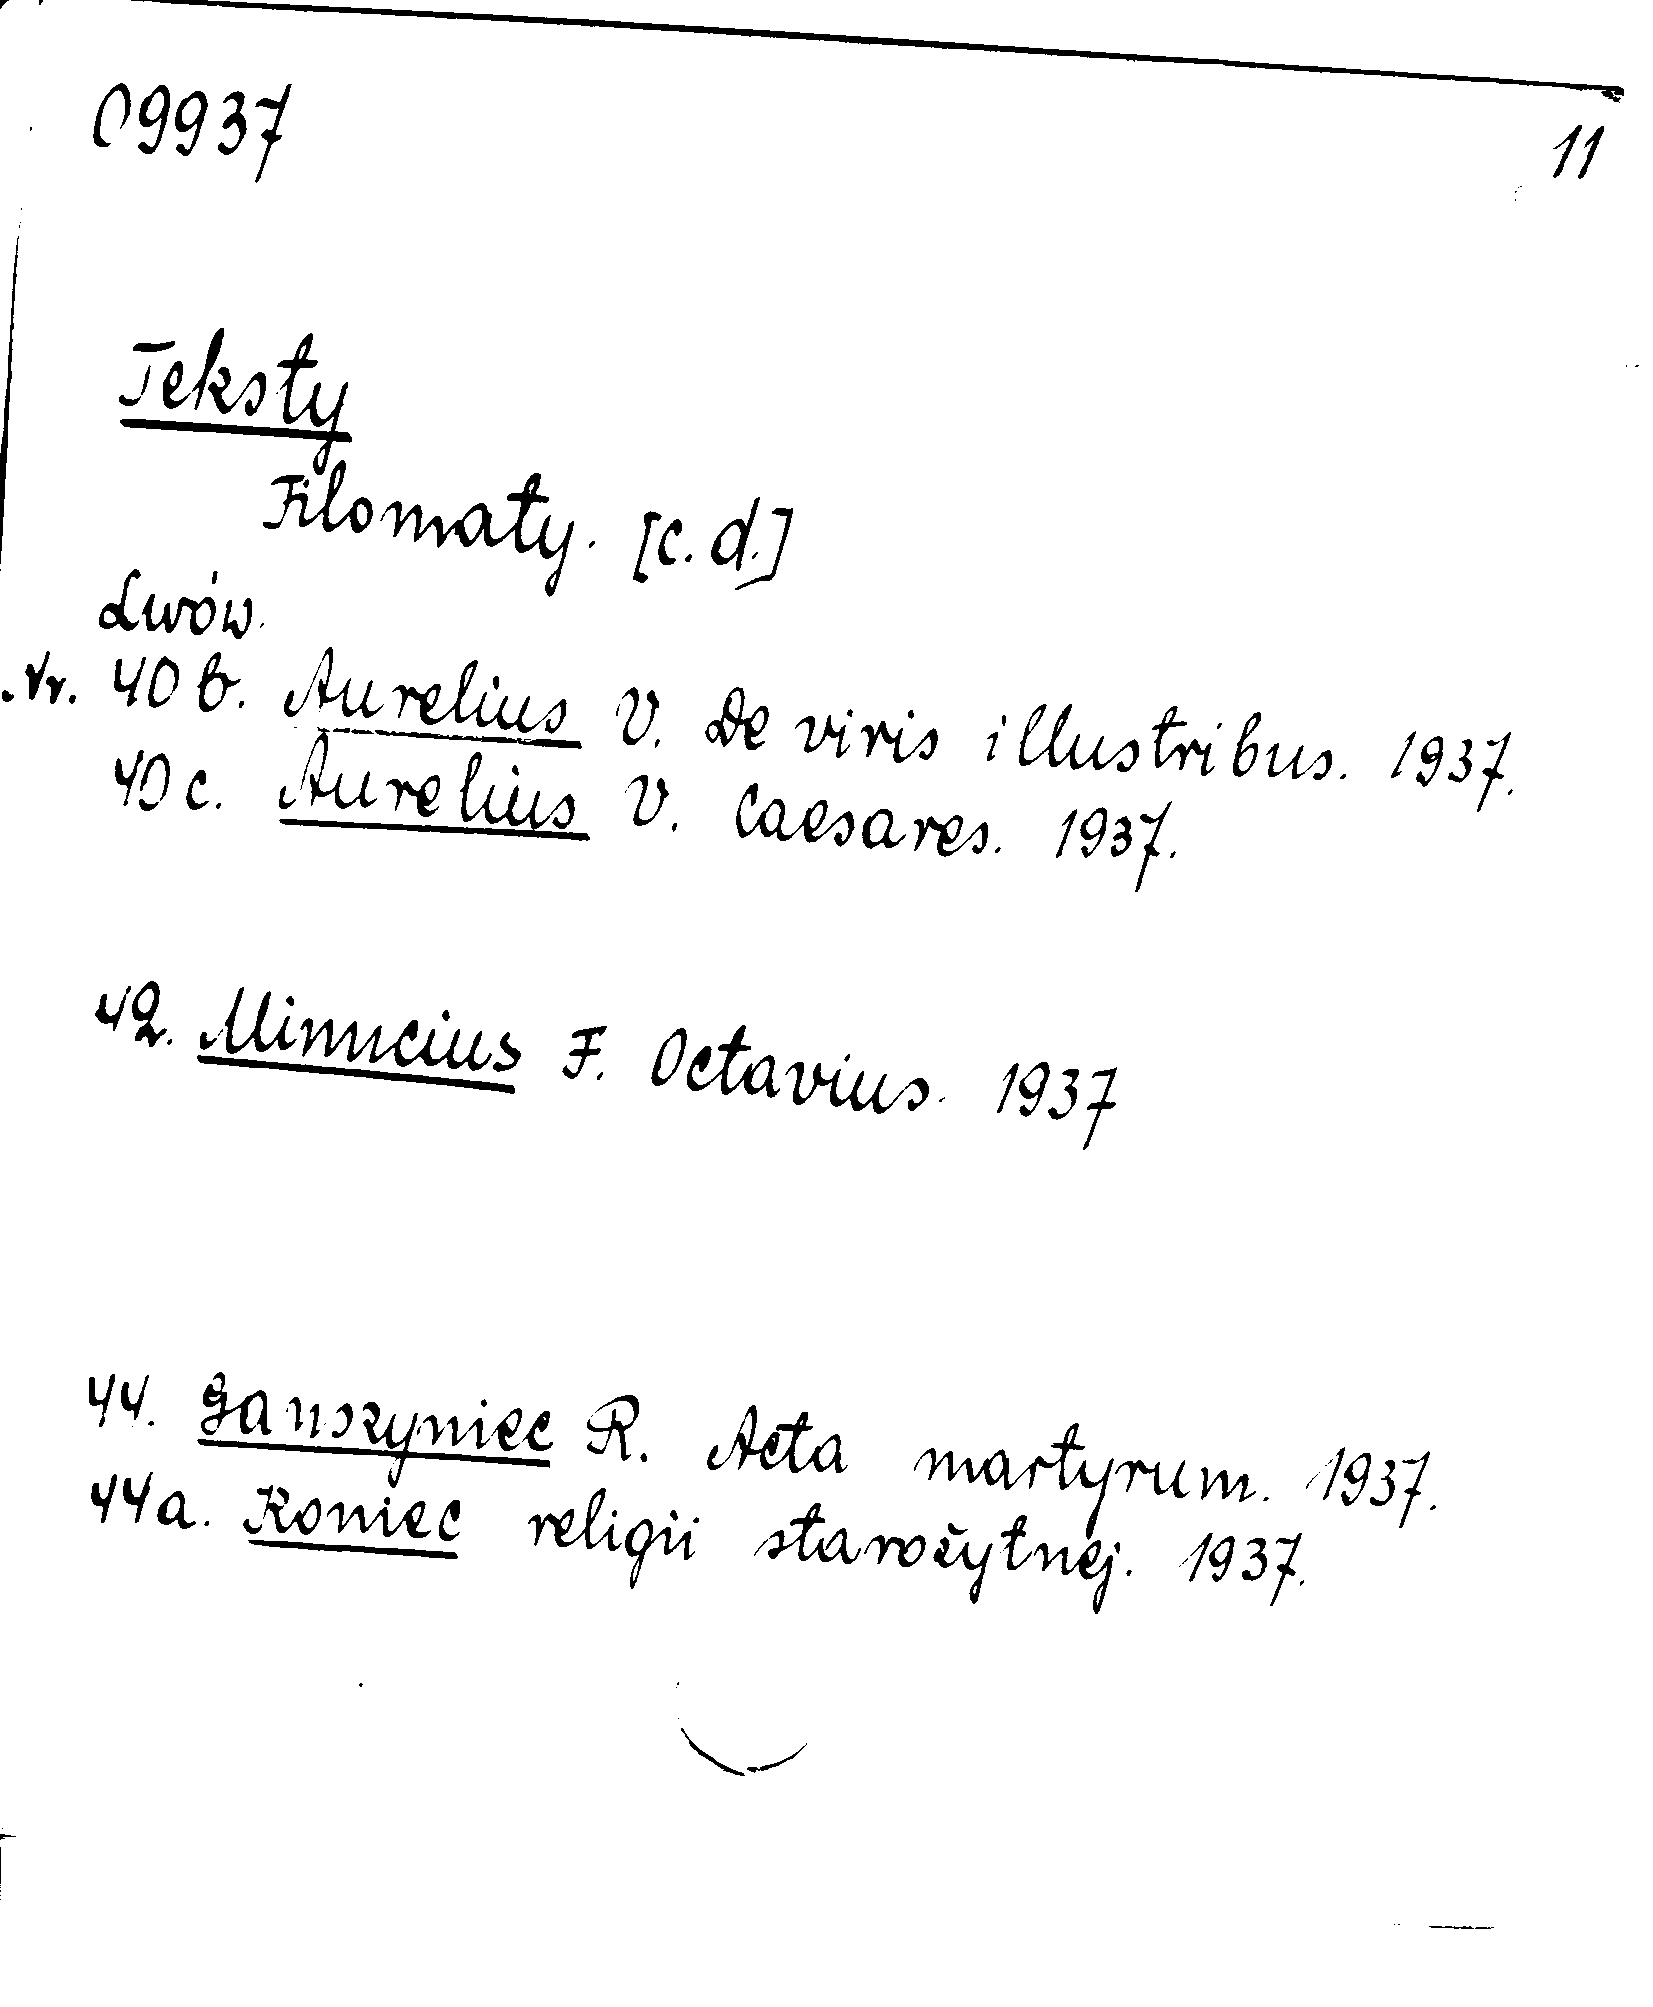 09937
11
Teksty
Filomaty. [c.d.]
Lwów.
Nr. 40 b. Aurelius V. De viris illustribus. 1937.
40 c. Aurelius V. Caesares. 1937.
42. Minucius F. Octavius. 1937
44. Ganszyniec R. Acta martyrum. 1937.
44a. Koniec religii starożytnej. 1937.